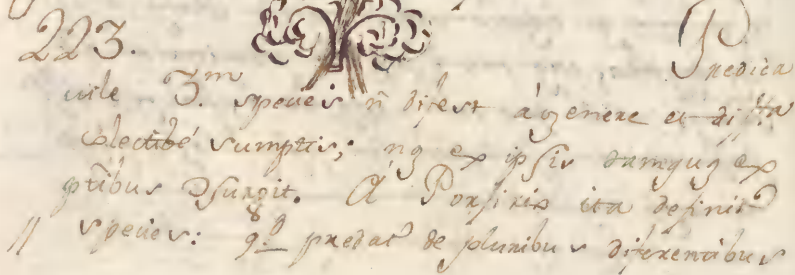 223. Predica
vile 3.m speueis ñ difert á genere et diffa
colectibé sumptis; nq ex ipsis tamquq ex
ptibus Ɔsurgit. Á Porfirio ita definitr
// speues: q.d predatr de pluribus diferentibus